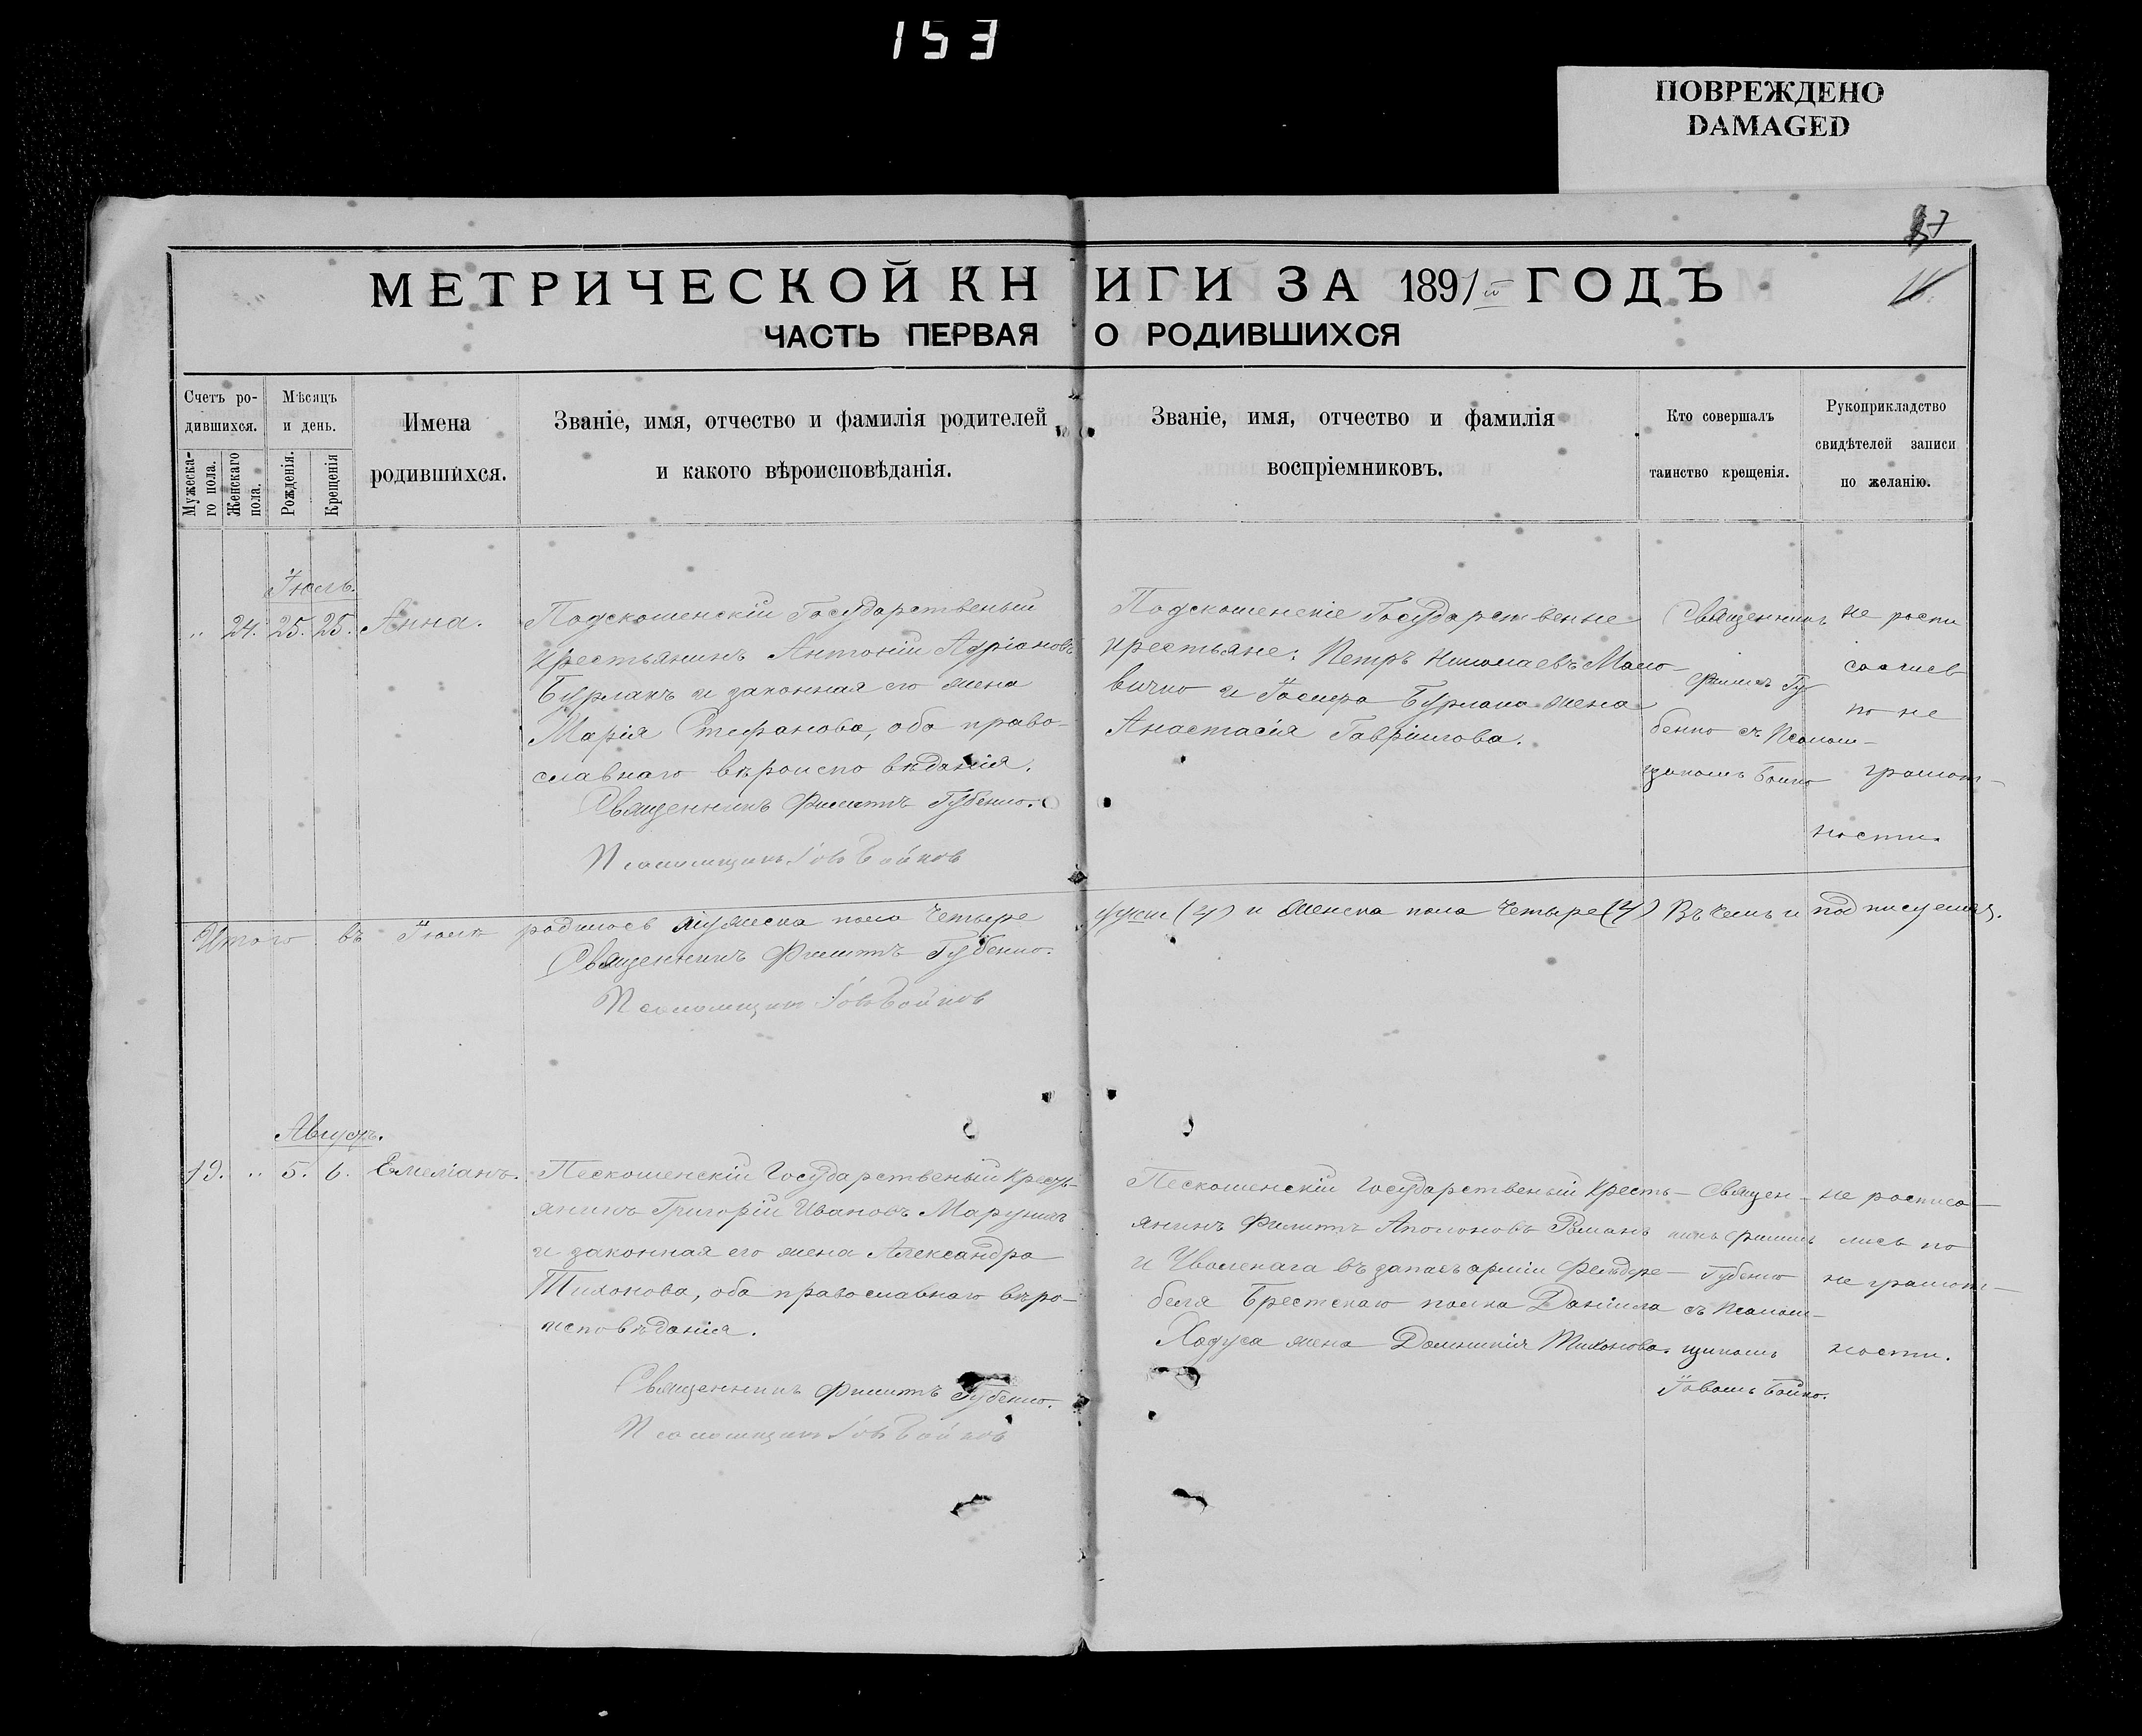 153
ПОВРЕЖДЕНО
DAMAGED
МЕТРИЧЕСКОЙ КНИГИ ЗА 1891 ГОДЪ
ЧАСТЬ ПЕРВАЯ О РОДИВШИХСЯ
Счетъ ро-
дившихся.
Мужеска-
го пола.
Женскаго
пола.
Мѣсяцъ
и день.
Рожденія.
Крещенія
Имена
родившихся.
Званіе, имя, отчество и фамилія родителей
и какого вѣроисповѣданія.
Званіе, имя, отчество и фамилія
воспріемниковъ.
Кто совершалъ
таинство крещенія.
Рукоприкладство
свидѣтелей записи
по желанію.
Іюль.
" 24. 25. 25. Анна.
Подскошенскій Государственый
крестьянинъ Антоній Адріановъ
Бурлакъ и законная его жена
Марія Стефанова, оба право-
славнаго вѣроисповѣданія.
Священникъ Филиппъ Губенко.
Псаломщикъ Іовъ Бойков
Государственые
крестьяне: Петръ Николаевъ
и Іосифа Бурлака жена
Анастасія Гавріилова.
Священникъ
Филиппъ Гу
бенко съ Псалом-
щикомъ Бойко
не роспи
по не
грамот-
ности.
Итого въ Іюлѣ родилось мужеска пола четыре
души (4) и женска пола четыре (4) Въ чемъ и подписуемся.
Священникъ Филиппъ Губенко.
Псаломщикъ Іовъ Бойков
Августъ.
19. " 5. 6. Емеліанъ.
Пескошенскій Государственый Кресть-
янинъ Григорій Ивановъ
и законная его жена Александра
Тихонова, оба православнаго вѣро-
исповѣданія.
Священникъ Филиппъ Губенко.
Псаломщикъ Іовъ Бойков
Пескошенскій Государственый Кресть-
янинъ Филиппъ Романъ
и въ запасъ арміи
Брестскаго полка Даніила
Ходуса жена Домникія Тихонова.
Священ-
никъ Филипъ
Губенко
съ Псалом-
щикомъ
Іовомъ Бойко.
не росписа-
лись по
не грамот-
ности.